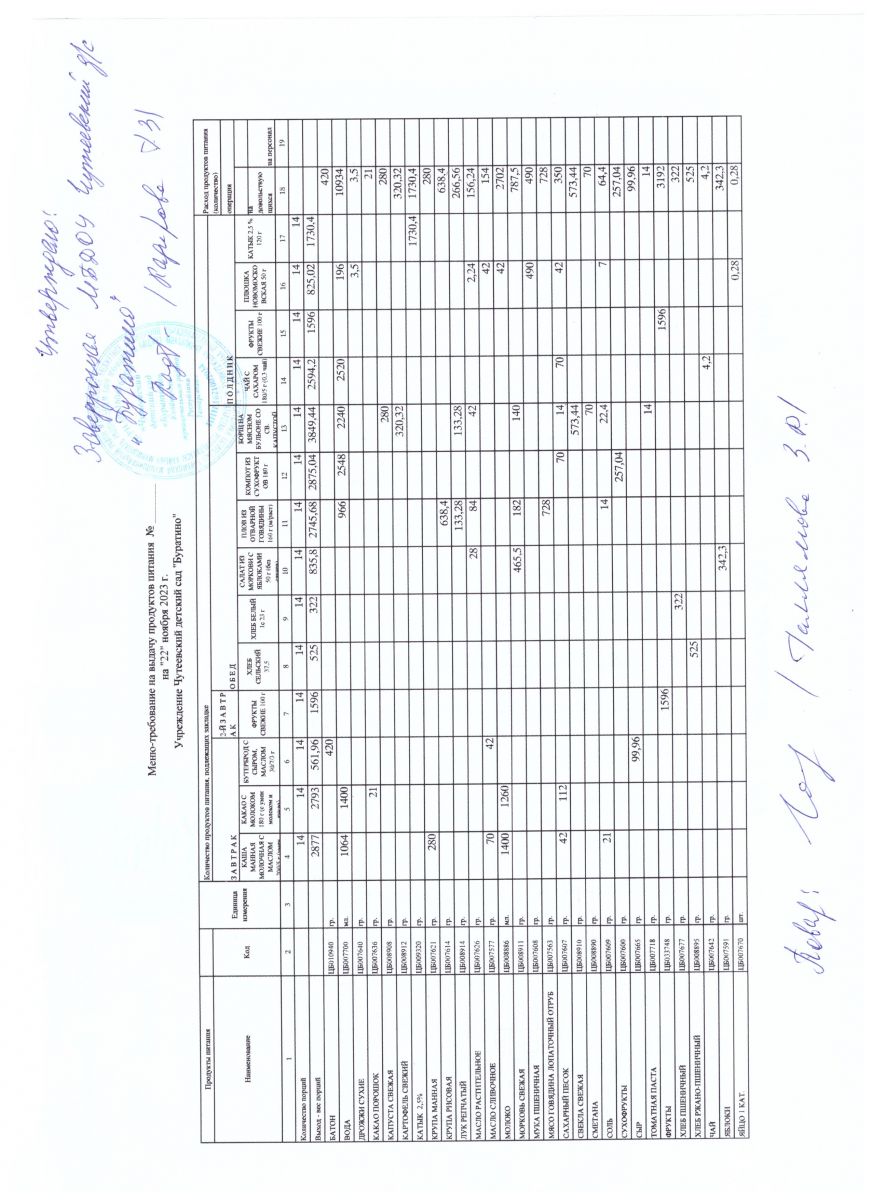 Утверждаю!
Заведующая МБДОУ Чутеевский д/с
"Буратино"
Меню-требование на выдачу продуктов питания №
на "22" ноября 2023 г.
Учреждение Чутеевский детский сад "Буратино"
Продукты питания | Единица измерения | Количество продуктов питания, подлежащих закладке | Расход продуктов питания (количество)
З А В Т Р А К | 2-Й З А В Т Р А К | О Б Е Д | П О Л Д Н И К | операция
Наименование | Код | КАША МАННАЯ МОЛОЧНАЯ С МАСЛОМ | КАКАО С МОЛОКОМ | БУТЕРБРОД С СЫРОМ, МАСЛОМ 30/7/3 г | ФРУКТЫ СВЕЖИЕ 100 г | ХЛЕБ СЕЛЬСКИЙ 37.5 | ХЛЕБ БЕЛЫЙ 1с 23 г | САЛАТ ИЗ МОРКОВИ С ЯБЛОКАМИ | ПЛОВ ИЗ ОТВАРНОЙ ГОВЯДИНЫ | КОМПОТ ИЗ СУХОФРУКТОВ 180 г | БОРЩ НА МЯСНОМ БУЛЬОНЕ СО СВ. КАПУСТОЙ | ЧАЙ С САХАРОМ | ФРУКТЫ СВЕЖИЕ 100 г | ПЛЮШКА НОВОМОСКОВСКАЯ 50 г | КАТЫК 2,5 % 120 г | на довольствующихся | на персонал
1 | 2 | 3 | 4 | 5 | 6 | 7 | 8 | 9 | 10 | 11 | 12 | 13 | 14 | 15 | 16 | 17 | 18 | 19
Количество порций | 14 | 14 | 14 | 14 | 14 | 14 | 14 | 14 | 14 | 14 | 14 | 14 | 14 | 14
Выход - вес порций | 2877 | 2793 | 561,96 | 1596 | 525 | 322 | 835,8 | 2745,68 | 2875,04 | 3849,44 | 2594,2 | 1596 | 825,02 | 1730,4
БАТОН | ЦБ010940 | гр. | 420 | 420
ВОДА | ЦБ007700 | мл. | 1064 | 1400 | 966 | 2548 | 2240 | 2520 | 196 | 10934
ДРОЖЖИ СУХИЕ | ЦБ007640 | гр. | 3,5 | 3,5
КАКАО ПОРОШОК | ЦБ007636 | гр. | 21 | 21
КАПУСТА СВЕЖАЯ | ЦБ008908 | гр. | 280 | 280
КАРТОФЕЛЬ СВЕЖИЙ | ЦБ008912 | гр. | 320,32 | 320,32
КАТЫК 2,5% | ЦБ009320 | гр. | 1730,4 | 1730,4
КРУПА МАННАЯ | ЦБ007621 | гр. | 280 | 280
КРУПА РИСОВАЯ | ЦБ007614 | гр. | 638,4 | 638,4
ЛУК РЕПЧАТЫЙ | ЦБ008914 | гр. | 133,28 | 133,28 | 266,56
МАСЛО РАСТИТЕЛЬНОЕ | ЦБ007626 | гр. | 28 | 84 | 42 | 2,24 | 156,24
МАСЛО СЛИВОЧНОЕ | ЦБ007577 | гр. | 70 | 42 | 42 | 154
МОЛОКО | ЦБ008886 | мл. | 1400 | 1260 | 42 | 2702
МОРКОВЬ СВЕЖАЯ | ЦБ008911 | гр. | 465,5 | 182 | 140 | 787,5
МУКА ПШЕНИЧНАЯ | ЦБ007608 | гр. | 490 | 490
МЯСО ГОВЯДИНА ЛОПАТОЧНЫЙ ОТРУБ | ЦБ007563 | гр. | 728 | 728
САХАРНЫЙ ПЕСОК | ЦБ007607 | гр. | 42 | 112 | 70 | 14 | 70 | 42 | 350
СВЕКЛА СВЕЖАЯ | ЦБ008910 | гр. | 573,44 | 573,44
СМЕТАНА | ЦБ008890 | гр. | 70 | 70
СОЛЬ | ЦБ007609 | гр. | 21 | 14 | 22,4 | 7 | 64,4
СУХОФРУКТЫ | ЦБ007600 | гр. | 257,04 | 257,04
СЫР | ЦБ007665 | гр. | 99,96 | 99,96
ТОМАТНАЯ ПАСТА | ЦБ007718 | гр. | 14 | 14
ФРУКТЫ | ЦБ033748 | гр. | 1596 | 1596 | 3192
ХЛЕБ ПШЕНИЧНЫЙ | ЦБ007677 | гр. | 322 | 322
ХЛЕБ РЖАНО-ПШЕНИЧНЫЙ | ЦБ008895 | гр. | 525 | 525
ЧАЙ | ЦБ007642 | гр. | 4,2 | 4,2
ЯБЛОКИ | ЦБ007591 | гр. | 342,3 | 342,3
ЯЙЦО 1 КАТ. | ЦБ007670 | шт. | 0,28 | 0,28
Повар: